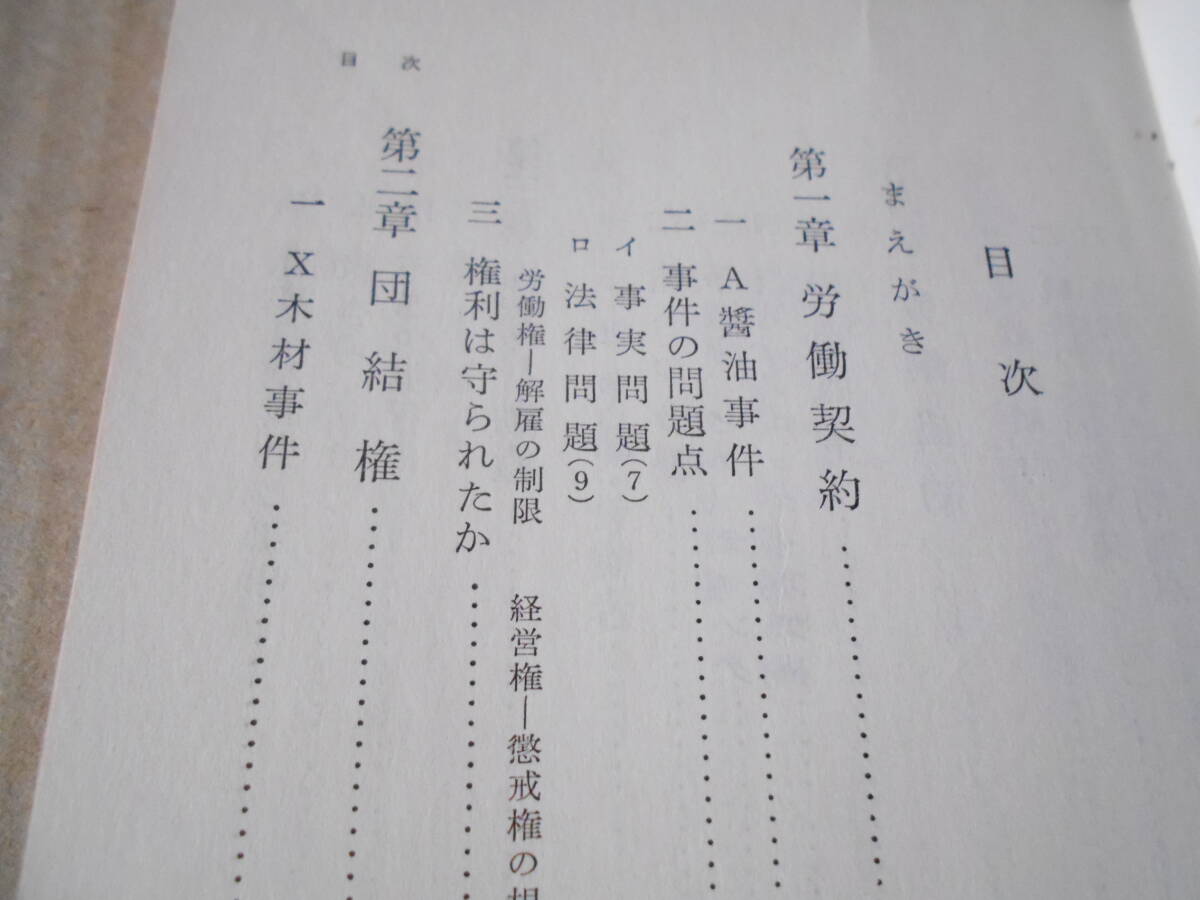 目次
まえがき
第一章 労働契約……………
一 A醬油事件……………
二 事件の問題点……………
イ 事実問題(7)
ロ 法律問題(9)
労働権―解雇の制限 経営権―懲戒権の
三 権利は守られたか……………
第二章 団結権……………
一 X木材事件……………
目次